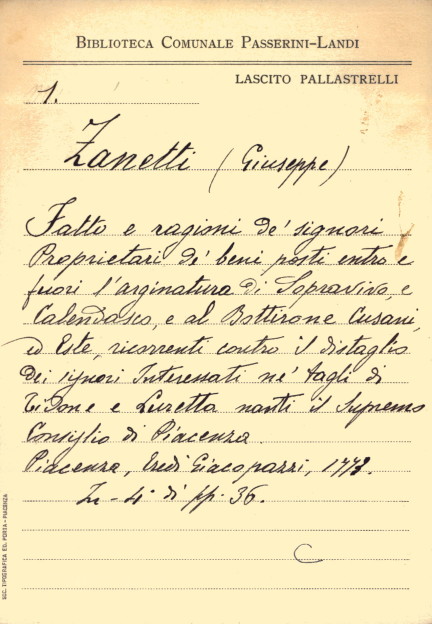 BIBLIOTECA COMUNALE PASSERINI-LANDI
LASCITO PALLASTRELLI
1.
Zanetti (Giuseppe)
Fatto e ragioni de' signori
Proprietari de' beni posti entro e
fuori l'arginatura di Sopravivo, e
Calendasco, e al Bottirone Cusani,
ed Este, ricorrenti contro il distaglio
dei signori Interessati ne' tagli di
Tidone e Luretta nanti il Supremo
Consiglio di Piacenza.
Piacenza, Eredi Giacopazzi, 1773.
In - 4° di pp. 36.
C
SOC. TIPOGRAFICA ED. PORTA - PIACENZA